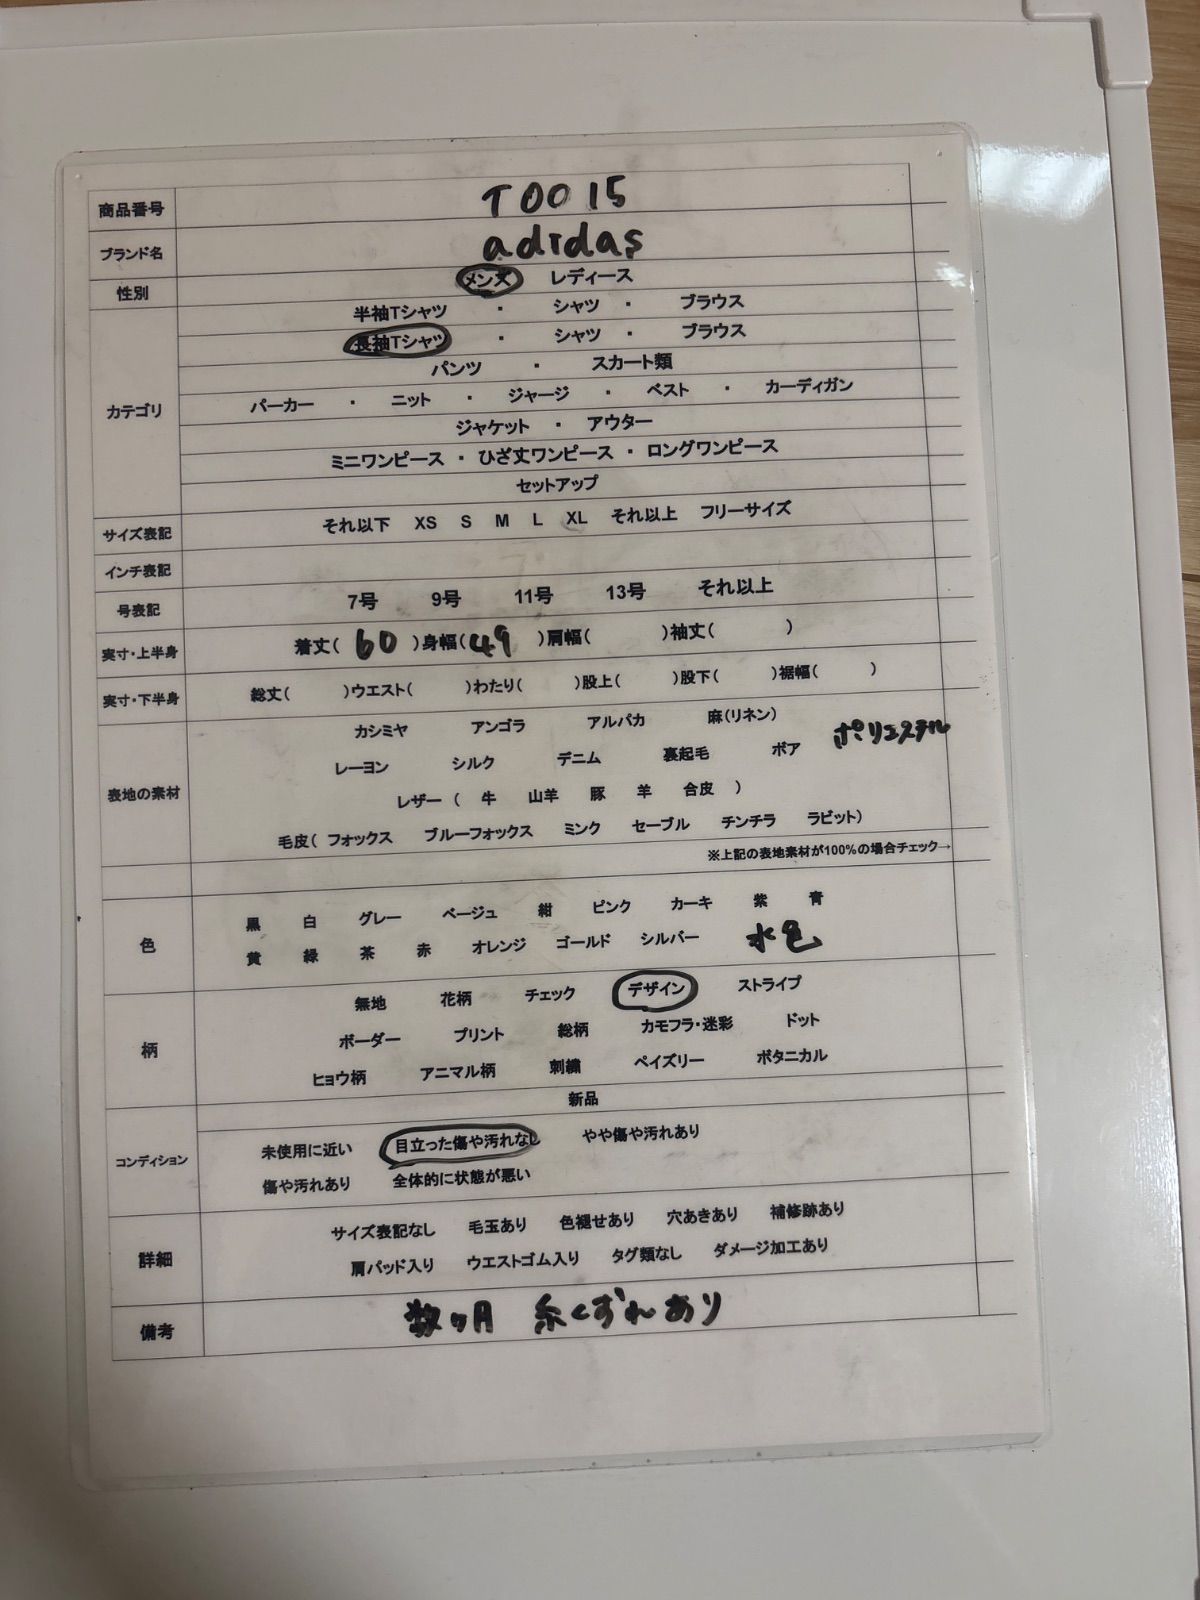 商品番号 T0015
ブランド名 adidas
性別 メンズ レディース
カテゴリ
半袖Tシャツ ・ シャツ ・ ブラウス
長袖Tシャツ ・ シャツ ・ ブラウス
パンツ ・ スカート類
パーカー ・ ニット ・ ジャージ ・ ベスト ・ カーディガン
ジャケット ・ アウター
ミニワンピース ・ ひざ丈ワンピース ・ ロングワンピース
セットアップ
サイズ表記 それ以下 XS S M L XL それ以上 フリーサイズ
インチ表記
号表記 7号 9号 11号 13号 それ以上
実寸・上半身 着丈( 60 )身幅( 49 )肩幅( )袖丈( )
実寸・下半身 総丈( )ウエスト( )わたり( )股上( )股下( )裾幅( )
表地の素材
カシミヤ アンゴラ アルパカ 麻(リネン) ポリエステル
レーヨン シルク デニム 裏起毛 ボア
レザー ( 牛 山羊 豚 羊 合皮 )
毛皮( フォックス ブルーフォックス ミンク セーブル チンチラ ラビット)
※上記の表地素材が100%の場合チェック→
色
黒 白 グレー ベージュ 紺 ピンク カーキ 紫 青
黄 緑 茶 赤 オレンジ ゴールド シルバー 水色
柄
無地 花柄 チェック デザイン ストライプ
ボーダー プリント 総柄 カモフラ・迷彩 ドット
ヒョウ柄 アニマル柄 刺繍 ペイズリー ボタニカル
コンディション
新品
未使用に近い 目立った傷や汚れなし やや傷や汚れあり
傷や汚れあり 全体的に状態が悪い
詳細
サイズ表記なし 毛玉あり 色褪せあり 穴あきあり 補修跡あり
肩パッド入り ウエストゴム入り タグ類なし ダメージ加工あり
備考 数ヶ月 糸くずれあり